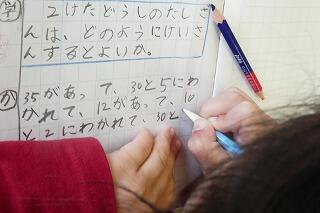 学 2けたどうしのたしさ
んは、どのようにけいさ
んするとよいか。
か 35があって、30と5にわ
かれて、12があって、10
と2にわかれて、30と